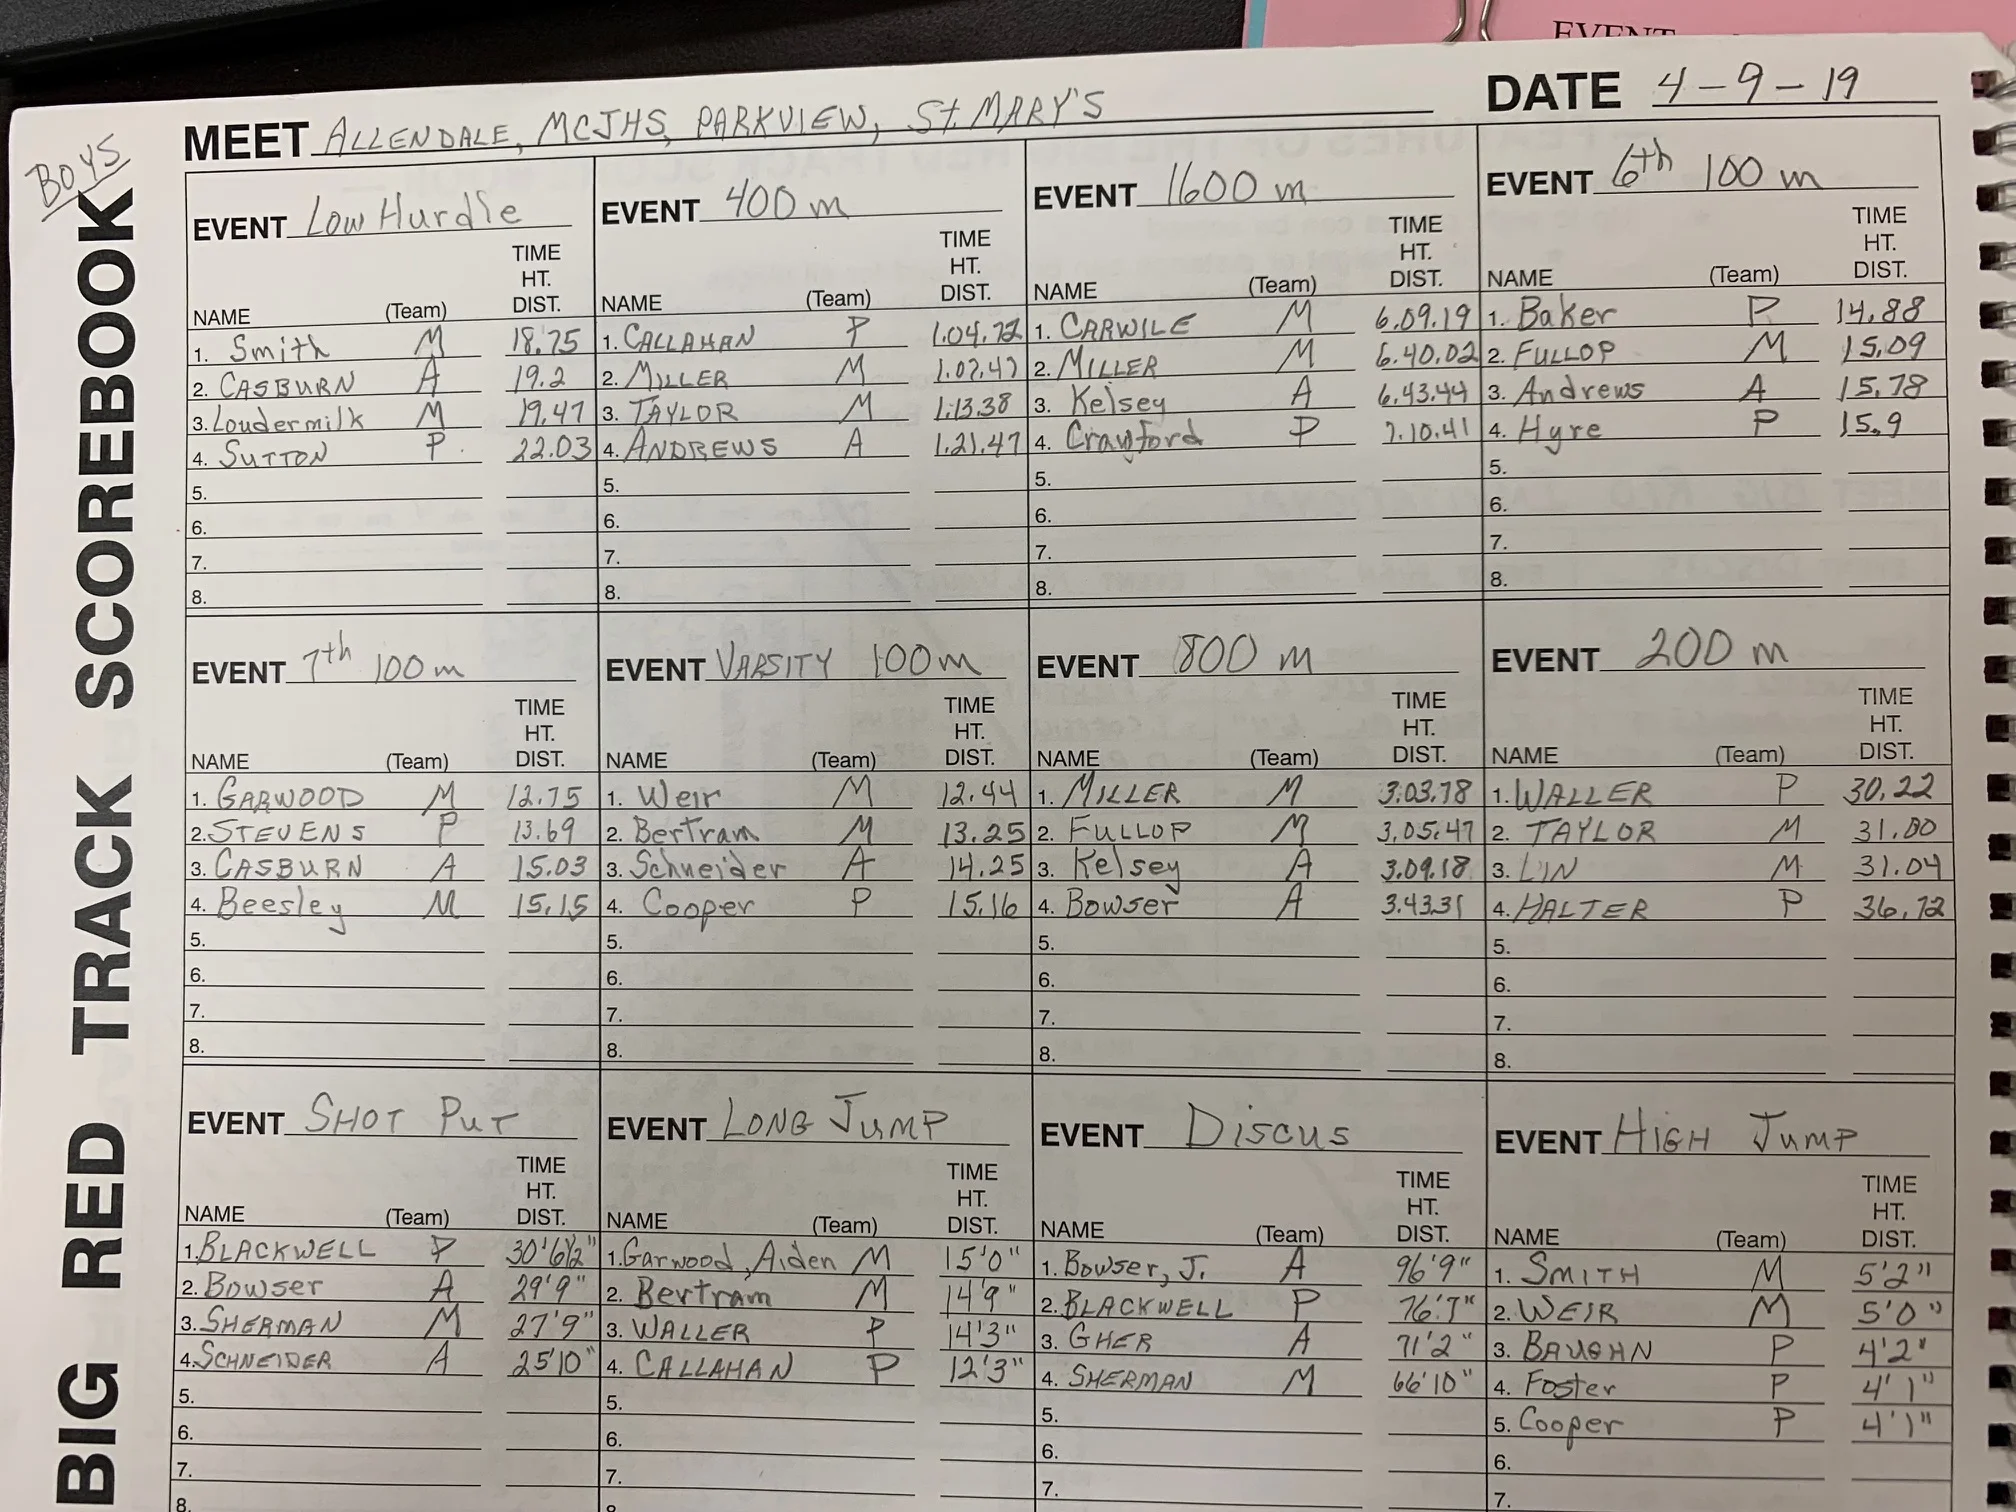 EVENT
BOYS
BIG RED TRACK SCOREBOOK
MEET ALLENDALE, MCJHS, PARKVIEW, St. MARY'S
DATE 4-9-19
EVENT Low Hurdle
TIME
HT.
NAME (Team) DIST.
1. Smith M 18.75
2. CASBURN A 19.2
3. Loudermilk M 19.47
4. SUTTON P 22.03
5.
6.
7.
8.
EVENT 400 m
TIME
HT.
NAME (Team) DIST.
1. CALLAHAN P 1.04.72
2. MILLER M 1.07.47
3. TAYLOR M 1.13.38
4. ANDREWS A 1.21.47
5.
6.
7.
8.
EVENT 1600 m
TIME
HT.
NAME (Team) DIST.
1. CARWILE M 6.09.19
2. MILLER M 6.40.02
3. Kelsey A 6.43.44
4. Crayford P 7.10.41
5.
6.
7.
8.
EVENT 6th 100 m
TIME
HT.
NAME (Team) DIST.
1. Baker P 14.88
2. FULLOP M 15.09
3. Andrews A 15.78
4. Hyre P 15.9
5.
6.
7.
8.
EVENT 7th 100 m
TIME
HT.
NAME (Team) DIST.
1. GARWOOD M 12.75
2. STEVENS P 13.69
3. CASBURN A 15.03
4. Beesley M 15.15
5.
6.
7.
8.
EVENT VARSITY 100 m
TIME
HT.
NAME (Team) DIST.
1. Weir M 12.44
2. Bertram M 13.25
3. Schneider A 14.25
4. Cooper P 15.16
5.
6.
7.
8.
EVENT 800 m
TIME
HT.
NAME (Team) DIST.
1. MILLER M 3.03.78
2. FULLOP M 3.05.47
3. Kelsey A 3.09.18
4. Bowser A 3.43.31
5.
6.
7.
8.
EVENT 200 m
TIME
HT.
NAME (Team) DIST.
1. WALLER P 30.22
2. TAYLOR M 31.00
3. LIN M 31.04
4. HALTER P 36.72
5.
6.
7.
8.
EVENT SHOT PUT
TIME
HT.
NAME (Team) DIST.
1. BLACKWELL P 30'6½"
2. Bowser A 29'9"
3. SHERMAN M 27'9"
4. SCHNEIDER A 25'10"
5.
6.
7.
8.
EVENT LONG JUMP
TIME
HT.
NAME (Team) DIST.
1. Garwood, Aiden M 15'0"
2. Bertram M 14'9"
3. WALLER P 14'3"
4. CALLAHAN P 12'3"
5.
6.
7.
8
EVENT Discus
TIME
HT.
NAME (Team) DIST.
1. Bowser, J. A 96'9"
2. BLACKWELL P 76'7"
3. GHER A 71'2"
4. SHERMAN M 66'10"
5.
6.
7.
EVENT HIGH JUMP
TIME
HT.
NAME (Team) DIST.
1. SMITH M 5'2"
2. WEIR M 5'0"
3. BAUGHN P 4'2"
4. Foster P 4'1"
5. Cooper P 4'1"
6.
7.